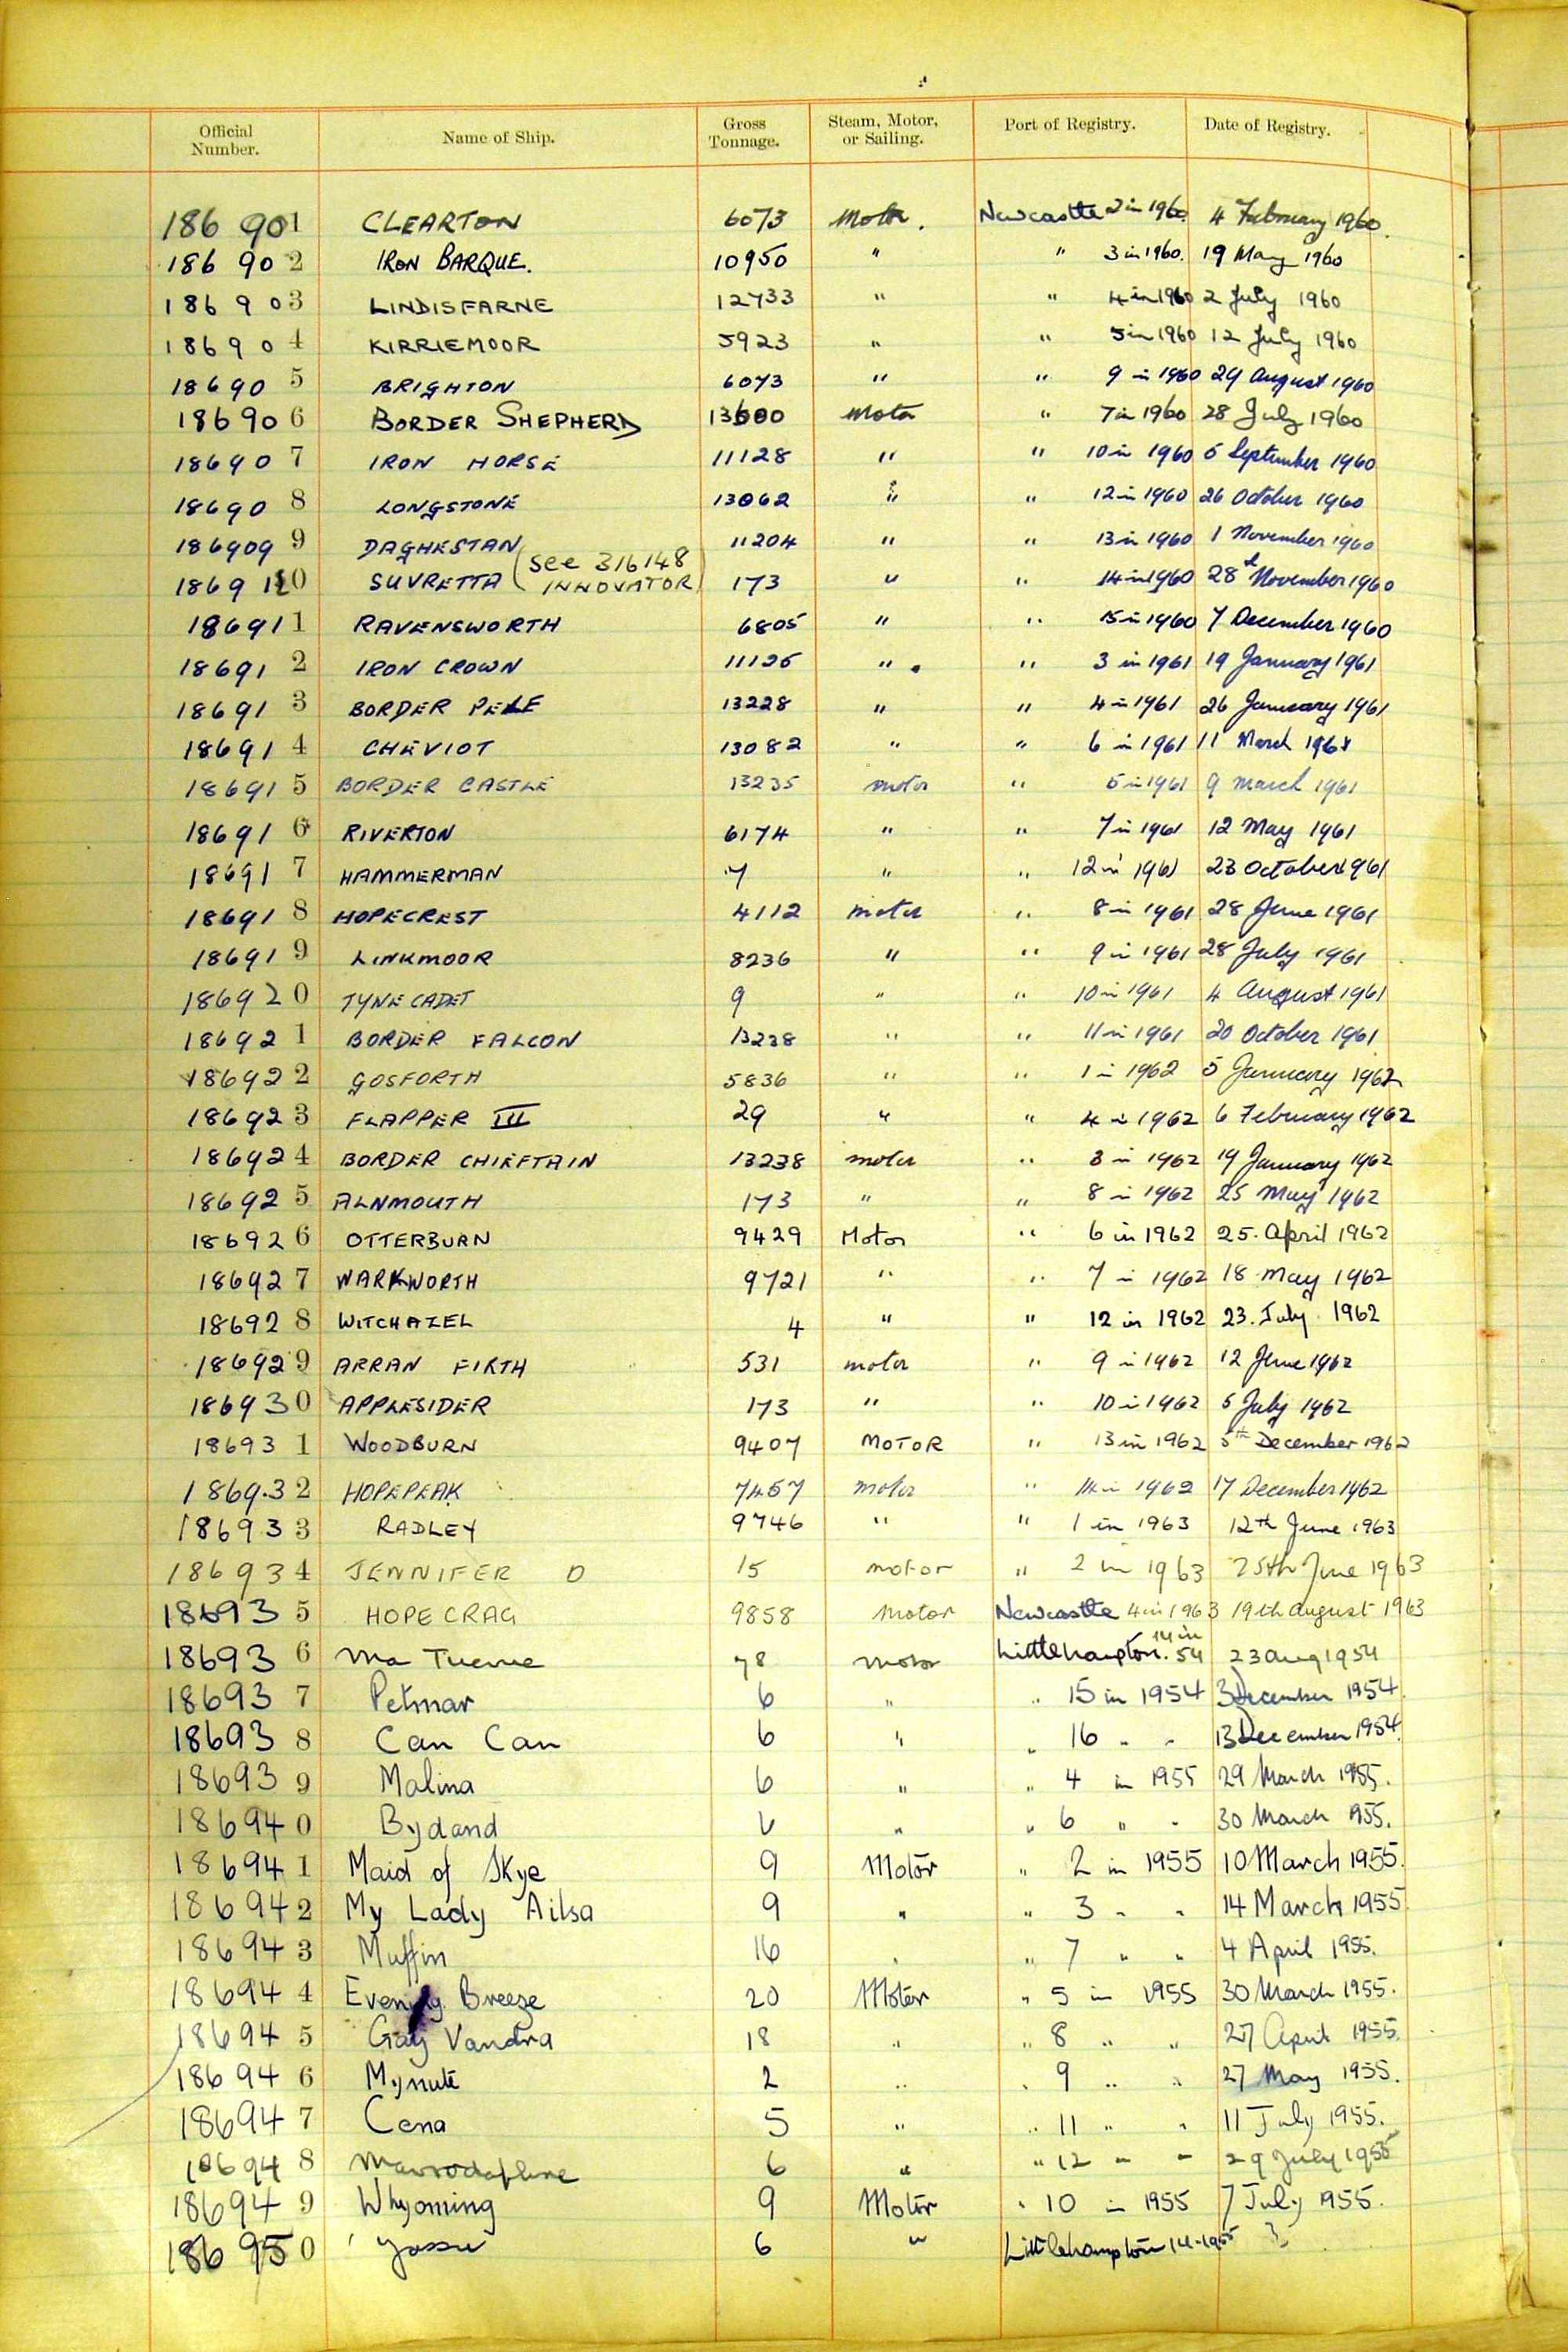 Official Number. Name of Ship. Gross Tonnage. Steam, Motor, or Sailing. Port of Registry. Date of Registry.
186 901 CLEARTON 6073 Motor. Newcastle 2 in 1960 4 February 1960.
186 902 IRON BARQUE. 10950 " " 3 in 1960. 19 May 1960
186 903 LINDISFARNE 12733 " " 4 in 1960 2 July 1960
186904 KIRRIEMOOR 5923 " " 5 in 1960 12 July 1960
186905 BRIGHTON 6073 " " 9 in 1960 29 August 1960
186906 BORDER SHEPHERD 13600 Motor " 7 in 1960 28 July 1960
186907 IRON HORSE 11128 " " 10 in 1960 5 September 1960
186908 LONGSTONE 13062 " " 12 in 1960 26 October 1960
186909 9 DAGHESTAN 11204 " " 13 in 1960 1 November 1960
186910 SUVRETTA (see 316148 INNOVATOR) 173 " " 14 in 1960 28th November 1960
186911 RAVENSWORTH 6805 " " 15 in 1960 7 December 1960
186912 IRON CROWN 11126 " " 3 in 1961 19 January 1961
186913 BORDER PELE 13228 " " 4 in 1961 26 January 1961
186914 CHEVIOT 13082 " " 6 in 1961 11 March 1961
186915 BORDER CASTLE 13235 motor " 5 in 1961 9 March 1961
186916 RIVERTON 6174 " " 7 in 1961 12 May 1961
186917 HAMMERMAN 7 " " 12 in 1961 23 October 1961
186918 HOPECREST 4112 motor " 8 in 1961 28 June 1961
186919 LINKMOOR 8236 " " 9 in 1961 28 July 1961
186920 TYNE CADET 9 " " 10 in 1961 4 August 1961
186921 BORDER FALCON 13238 " " 11 in 1961 20 October 1961
186922 GOSFORTH 5836 " " 1 in 1962 5 January 1962
186923 FLAPPER III 29 " " 4 in 1962 6 February 1962
186924 BORDER CHIEFTAIN 13238 motor " 3 in 1962 19 January 1962
186925 ALNMOUTH 173 " " 8 in 1962 25 May 1962
186926 OTTERBURN 9429 Motor " 6 in 1962 25. April 1962
186927 WARKWORTH 9721 " " 7 in 1962 18 May 1962
186928 WITCHAZEL 4 " " 12 in 1962 23. July 1962
186929 ARRAN FIRTH 531 motor " 9 in 1962 12 June 1962
186930 APPLESIDER 173 " " 10 in 1962 5 July 1962
186931 WOODBURN 9407 MOTOR " 13 in 1962 5th December 1962
186932 HOPEPEAK 7457 motor " 14 in 1962 17 December 1962
186933 RADLEY 9746 " " 1 in 1963 12th June 1963
186934 JENNIFER D 15 motor " 2 in 1963 25th June 1963
186935 HOPECRAG 9858 motor Newcastle 4 in 1963 19th August 1963
186936 Ma 78 motor Littlehampton. 14 in 54 23 Aug 1954
186937 Petmar 6 " " 15 in 1954 3 December 1954
186938 Can Can 6 " " 16 " " 13 December 1954.
186939 Malina 6 " " 4 in 1955 29 March 1955.
186940 Bydand 6 " " 6 " " 30 March 1955.
186941 Maid of Skye 9 Motor " 2 in 1955 10 March 1955.
186942 My Lady Ailsa 9 " " 3 " " 14 March 1955
186943 Muffin 16 " " 7 " " 4 April 1955.
186944 Evening Breeze 20 Motor " 5 in 1955 30 March 1955.
186945 Gay Vandra 18 " " 8 " " 27 April 1955.
186946 Mynute 2 " " 9 " " 27 May 1955.
186947 Cena 5 " " 11 " " 11 July 1955.
186948 Mavrodaphne 6 " " 12 " " 29 July 1955
186949 Whyoming 9 Motor " 10 in 1955 7 July 1955.
186950 6 " Littlehampton 14-1955